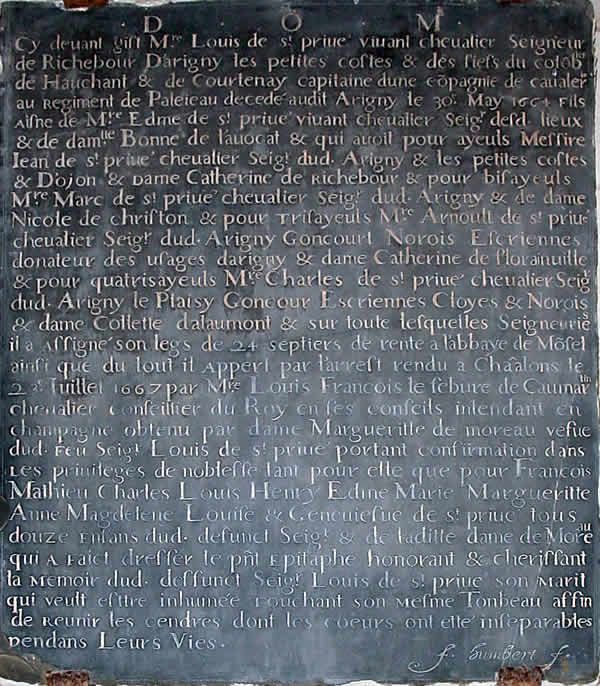 D O M
Cy deuant gist Mre Louis de st priué viuant cheualier Seigneur
de Richebour Darigny les petites costes & des fiefs du colōbr
de Hauchant & de Courtenay capitaine dune cōpagnie de caualer
au Regiment de Paleieau decedé audit Arigny le 30e May 1664 fils
aisne de Mre Edme de st priué viuant cheualier Seigr desd. lieux
& de damlle Bonne de lauocat & qui auoit pour ayeuls Messire
Iean de st priué cheualier Seigr dud. Arigny & les petites costes
& D'ojon & Dame Catherine de Richebour & pour bisayeuls
Mre Marc de st priué cheualier Seigr dud. Arigny & de dame
Nicole de christon & pour Trisayeuls Mre Arnoult de st priué
cheualier Seigr dud. Arigny Goncourt Norois Escriennes
donateur des usages darigny & dame Catherine de florainuille
& pour quatrisayeuls Mre Charles de st priué cheualier Seigr
dud. Arigny le Plaisy Goncour Escriennes Cloyes & Norois
& dame Collette dalaumont & sur toute lesquelles Seigneuries
il a assigné son legs de 24 septiers de rente a labbaye de Môsel
ainsi que du tout il Appert par larrest rendu a Chââlons le
2 Juillet 1667 par Mre Louis Francois le febure de Caumartin
cheualier conseillier du Roy en ses conseils intendant en
champagne obtenu par dame Margueritte de moreau vefue
dud. Feu Seigr Louis de st priué portant confirmation dans
Les priuileges de noblesse tant pour elle que pour François
Mathieu Charles Louis Henry Edme Marie Margueritte
Anne Magdelene Louise & Geneuiefue de st priué tous
douze Enfans dud. defunct Seigr & de laditte dame de Moreau
qui a Faict dresser le pñt Epitaphe honorant & cherissant
la Memoir dud. deffunct Seigr Louis de st priué son Marit
qui veult estre inhumée Touchant son Mesme Tonbeau affin
de Reunir les cendres dont les coeurs ont etté inseparables
Pendans Leurs Vies.
f. humbert f.